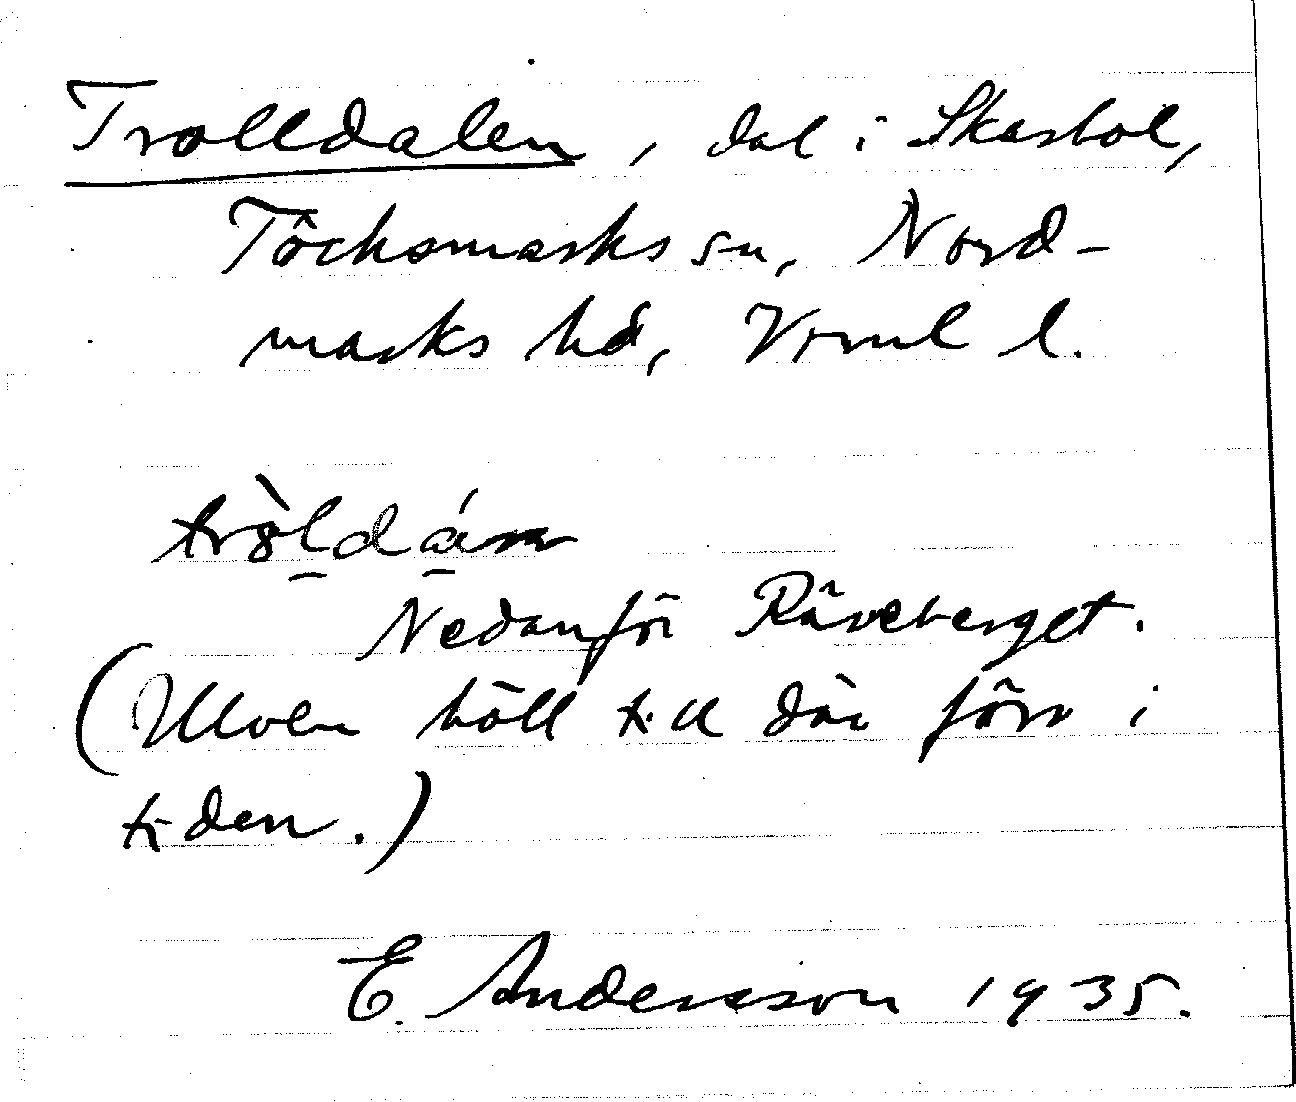 Trolldalen, dal i Skarbol,
Töcksmarks sn, Nord-
marks hd, Vrml l.
trò̀ldán
Nedanför Räveberget.
(Ulven höll till där förr i
tiden.)
E. Andersson 1935.